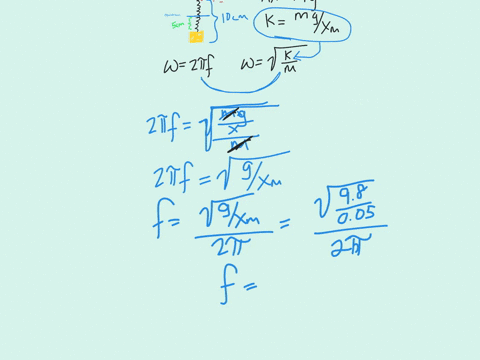 10cm
5cm
K = mg/xm
ω = 2πf ω = √K/m
2πf = √mg/x/m
2πf = √g/xm
f = √g/xm / 2π = √9.8/0.05 / 2π
f =